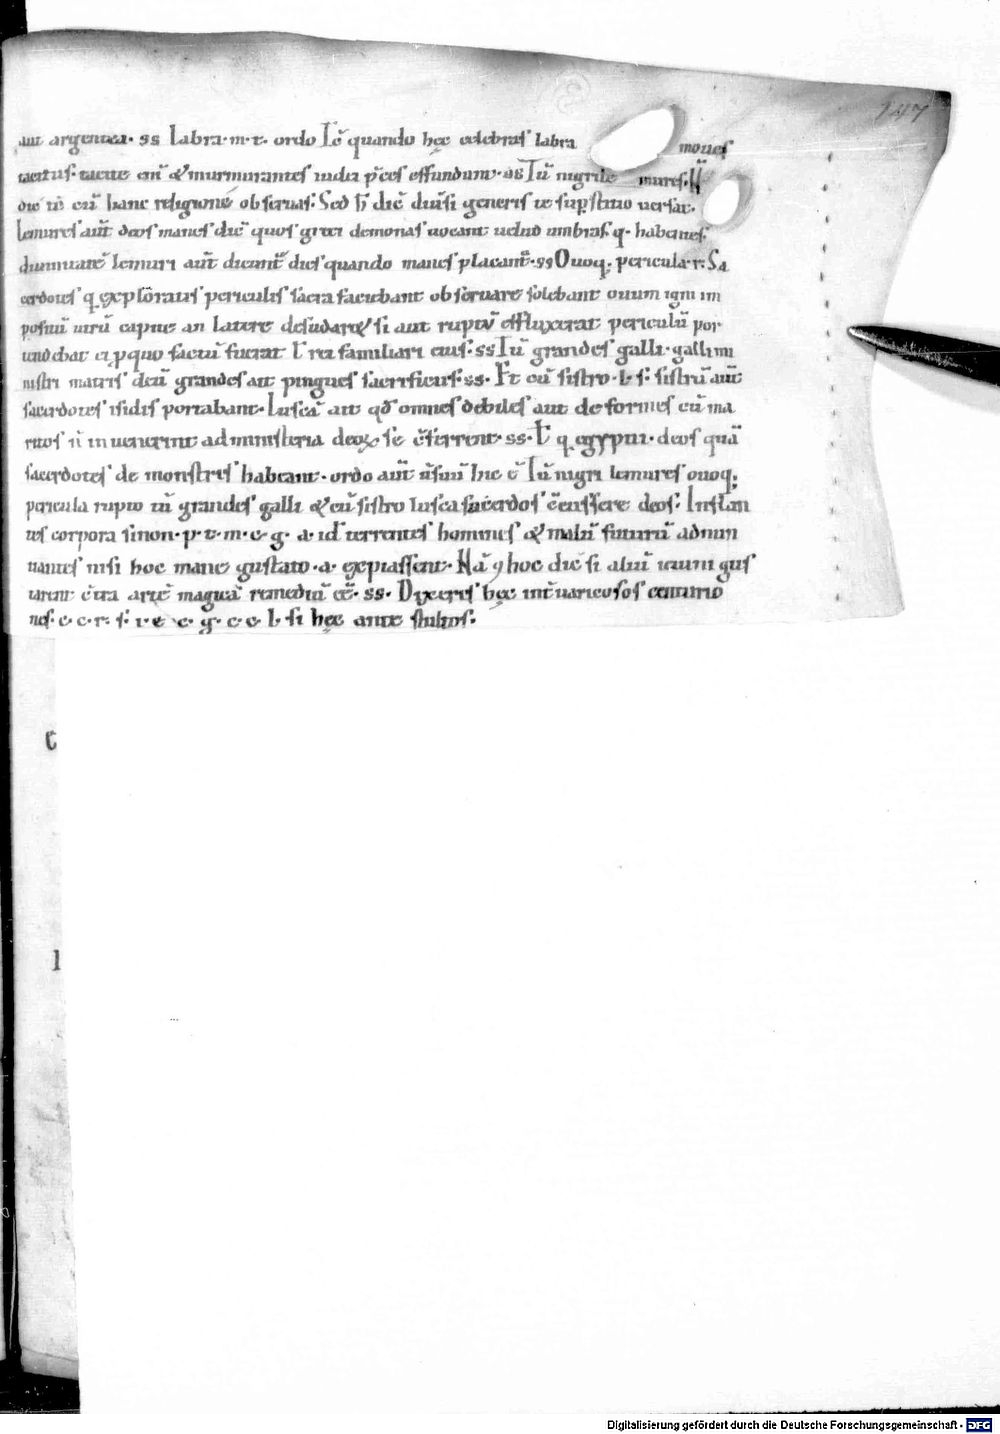 147
aut argentea· ss labra·m·t· ordo Iđ e quando hęc celebras labra moues
tacitus· tacite eni᷒ & murmurantes iudei p̄ces effundunt· ss Tu᷒ nigri le mures· H
die n̄ cū hanc religionē obseruas· Sed h̄ dic̄ diu̅si generis te sup̱stitio uersat·
Lemures aut̄ deos manes dic̄ quos greci demonas uocant uelud umbras q· habentes
lemuri aut̄ dicunt̄ dies quando manes placant̄· ss Ouoq; pericula·r· Sa
cerdotes q explōratis periculis sacra faciebant obseruare solebant ouum igni im
positū utrū capite an latere desudaret & si aut ruptū effluxerat periculū por
tendebat ei p quo factū fuerat ł rei familiari eius· ss Tū grandes galli· galli mi
nistri matris deū grandes aut pingues sacrificus· ss· Et cū sistro·
sacerdotes isidis portabant· Lusca᷒ ait qđ omnes debiles aut deformes cū ma
ritos n̄ inuenerint ad ministeria deoꝝ se c̄ferrent· ss· ł q egyptii· deos quā
sacerdotes de monstris habeant· ordo aut̄ u̅suū hic ē Tū nigri lemures ouoq;
pericula rupto tū grandes galli & cū sistro lusca sacerdos deos· Inflan
tes corpora si non·p·t·m·c·g· a· id ē terrentes homines & malū futurū adnun
tiantes nisi hoc mane gustato·a· expiassent· Nā ꝯ hoc dic̄ si aliū gus
tarent c̄tra artē magicā remediū ēē· ss· Dixeris hęc int̄ uaricosos centurio
nes· c·c·r· s· i·e c·g·c·c ł· si hęc ante stultos·
C
l
Digitalisierung gefördert durch die Deutsche Forschungsgemeinschaft · DFG